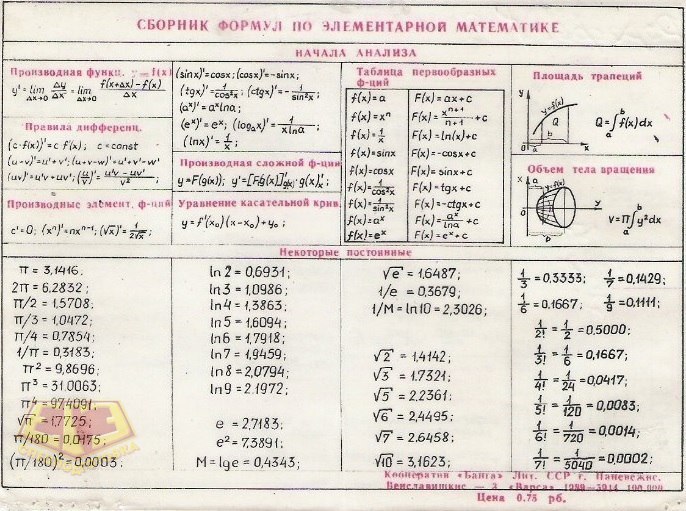 СБОРНИК ФОРМУЛ ПО ЭЛЕМЕНТАРНОЙ МАТЕМАТИКЕ
НАЧАЛА АНАЛИЗА
Производная функц. y=f(x)
y' = lim Δx→0 Δy/Δx = lim Δx→0 (f(x+Δx)-f(x))/Δx
Правила дифференц.
(c·f(x))'=c f'(x); c=const
(u-v)'=u'+v'; (u+v-w)'=u'+v'-w'
(uv)'=u'v+uv'; (u/v)'=(u'v-uv')/v²;
Производные элемент. ф-ций
c'=0; (xⁿ)'=nxⁿ⁻¹; (√x)'=1/(2√x);
(sinx)'=cosx; (cosx)'=-sinx;
(tgx)'=1/cos²x; (ctgx)'=-1/sin²x;
(aˣ)'=aˣlna;
(eˣ)'=eˣ; (logₐx)'=1/(xlna);
(lnx)'=1/x;
Производная сложной ф-ции
y=F(g(x)); y'=[F(g(x)]'g(x)·g(x)'x;
Уравнение касательной крив.
y=f'(x₀)(x-x₀)+y₀;
Таблица первообразных
ф-ций
f(x)=a F(x)=ax+c
f(x)=xⁿ F(x)=xⁿ⁺¹/(n+1)+c
f(x)=1/x F(x)=ln(x)+c
f(x)=sinx F(x)=-cosx+c
f(x)=cosx F(x)=sinx+c
f(x)=1/cos²x F(x)=tgx+c
f(x)=1/sin²x F(x)=-ctgx+c
f(x)=aˣ F(x)=aˣ/lna+c
f(x)=eˣ F(x)=eˣ+c
Площадь трапеций
y
y=f(x)
Q
a
b
x
Q=∫ₐᵇf(x)dx
Объем тела вращения
x
a
y=f(x)
y
b
V=П∫ₐᵇy²dx
Некоторые постоянные
π = 3,1416.
2π = 6,2832;
π/2 = 1,5708;
π/3 = 1,0472;
π/4 = 0,7854;
1/π = 0,3183;
π² = 9,8696;
π³ = 31.0063;
π⁴ = 97,4091;
√π = 1,7725;
π/180 = 0,0175;
(π/180)² = 0,0003;
ln2 = 0,6931;
ln3 = 1,0986;
ln4 = 1,3863;
ln5 = 1,6094;
ln6 = 1,7918;
ln7 = 1,9459;
ln8 = 2,0794;
ln9 = 2.1972;
e = 2,7183;
e² = 7.3891;
M = lge = 0,4343;
√e = 1,6487;
1/e = 0,3679;
1/M = ln10 = 2,3026;
√2 = 1,4142;
√3 = 1.7321;
√5 = 2,2361;
√6 = 2,4495;
√7 = 2.6458;
√10 = 3,1623;
1/3 = 0,3333; 1/7 = 0,1429;
1/6 = 0,1667; 1/9 = 0,1111;
1/2! = 1/2 = 0,5000;
1/3! = 1/6 = 0,1667;
1/4! = 1/24 = 0,0417;
1/5! = 1/120 = 0,0083;
1/6! = 1/720 = 0,0014;
1/7! = 1/5040 = 0,0002;
Кооператив «Банга» Лит. ССР г. Паневежис.
«Варса» 1989 100 000
Цена 0.75 рб.